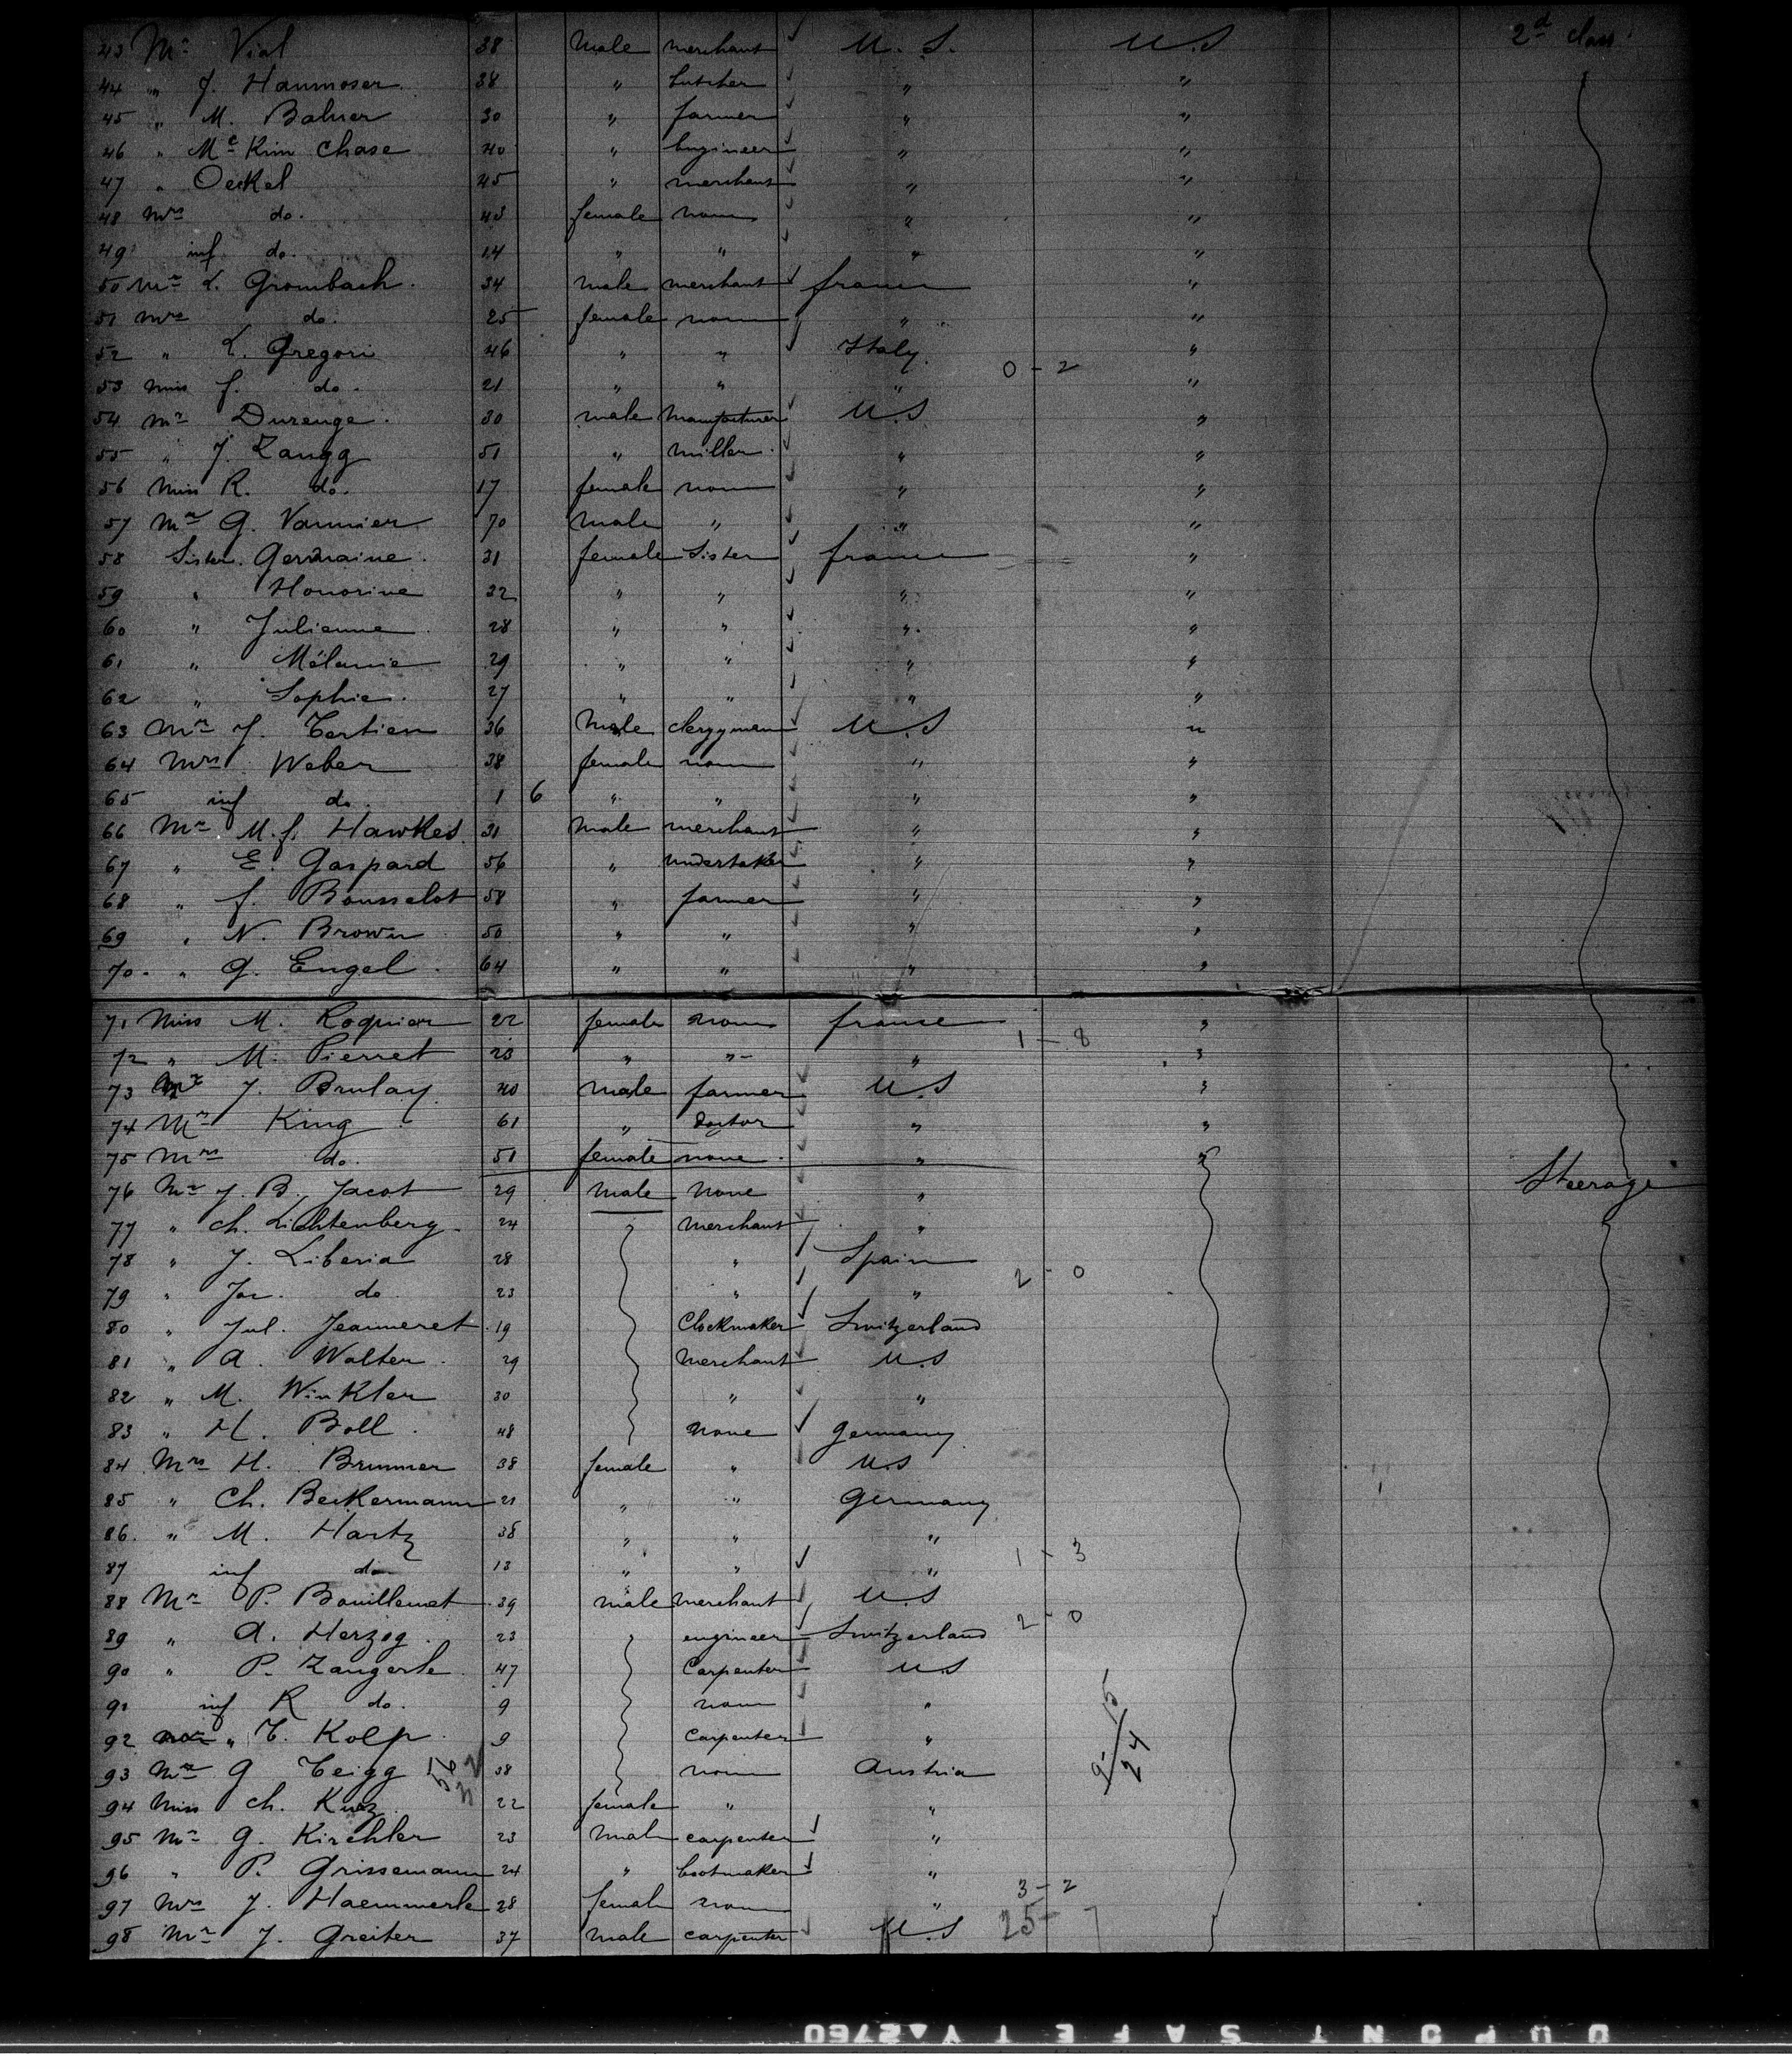 43 Mr Vial 38 Male merchant U. S. U.S 2d class
44 " J. Hanmoser 38 " butcher " "
45 " M. Balmer 30 " farmer " "
46 " Mc Kim Chase 40 " Engineer " "
47 " Oeckel 45 " merchant " "
48 Mrs do. 43 female none " "
49 inf do. 14 " " " "
50 Mr L. Grombach 34 male merchant france "
51 Mrs do. 25 female none " "
52 " L. Gregori 46 " " Italy "
0 - 2
53 Miss f. do. 21 " " " "
54 Mr Durenge 30 male manufacturer U.S "
55 " J. Zangg 51 " miller " "
56 Miss R. do. 17 female none " "
57 Mr G. Vannier 70 Male " " "
58 Sister Germaine 31 female Sister france "
59 " Honorine 32 " " " "
60 " Julienne 28 " " " "
61 " Mélanie 29 " " " "
62 " Sophie 27 " " " "
63 Mr J. Tertien 36 Male clergyman U.S "
64 Mrs Weber 38 female none " "
65 inf do 1 6 " " " "
66 Mr M. f. Hawkes 31 male merchant " "
67 " E. Gaspard 56 " undertaker " "
68 " f. Bousselot 58 " farmer " "
69 " N. Brown 50 " " " "
70 " G. Engel 64 " " " "
71 Miss M. Roquier 22 female none france "
1 - 8
72 " M. Pierret 23 " " " "
73 Mr J. Brulay 40 male farmer U.S "
74 Mr King 61 " Doctor " "
75 Mrs do. 51 female none " "
76 Mr J. B. Jacot 29 male None " Steerage
77 " Ch. Lichtenberg 24 merchant "
78 " J. Liberia 28 " Spain
2 - 0
79 " Jos. do 23 " "
80 " Jul. Jeanneret 19 Clockmaker Switzerland
81 " A. Walter 29 Merchant U.S
82 " M. Winkler 30 " "
83 " H. Boll 48 None Germany
84 Mrs H. Brunner 38 female " U.S
85 " Ch. Beckermann 21 " " Germany
86 " M. Hartz 38 " " "
87 inf do 13 " " " 1 - 3
88 Mr P. Bouillemet 39 male merchant U.S
2 - 0
89 " A. Herzog 23 engineer Switzerland
90 " P. Zangerle 47 Carpenter U.S
91 inf R do. 9 none "
92 " T. Kolp 9 Carpenter "
93 Mr G Teigg 38 none Austria
94 Miss Ch. Kurz 22 female " "
95 Mr G. Kirchler 23 Male carpenter "
96 " P. Grissemann 24 " bootmaker "
3 - 2
97 Mrs J. Haemmerle 28 female none "
98 Mr J. Greiter 37 male carpenter U.S 25 - 7
DUPONT SAFETY 2760